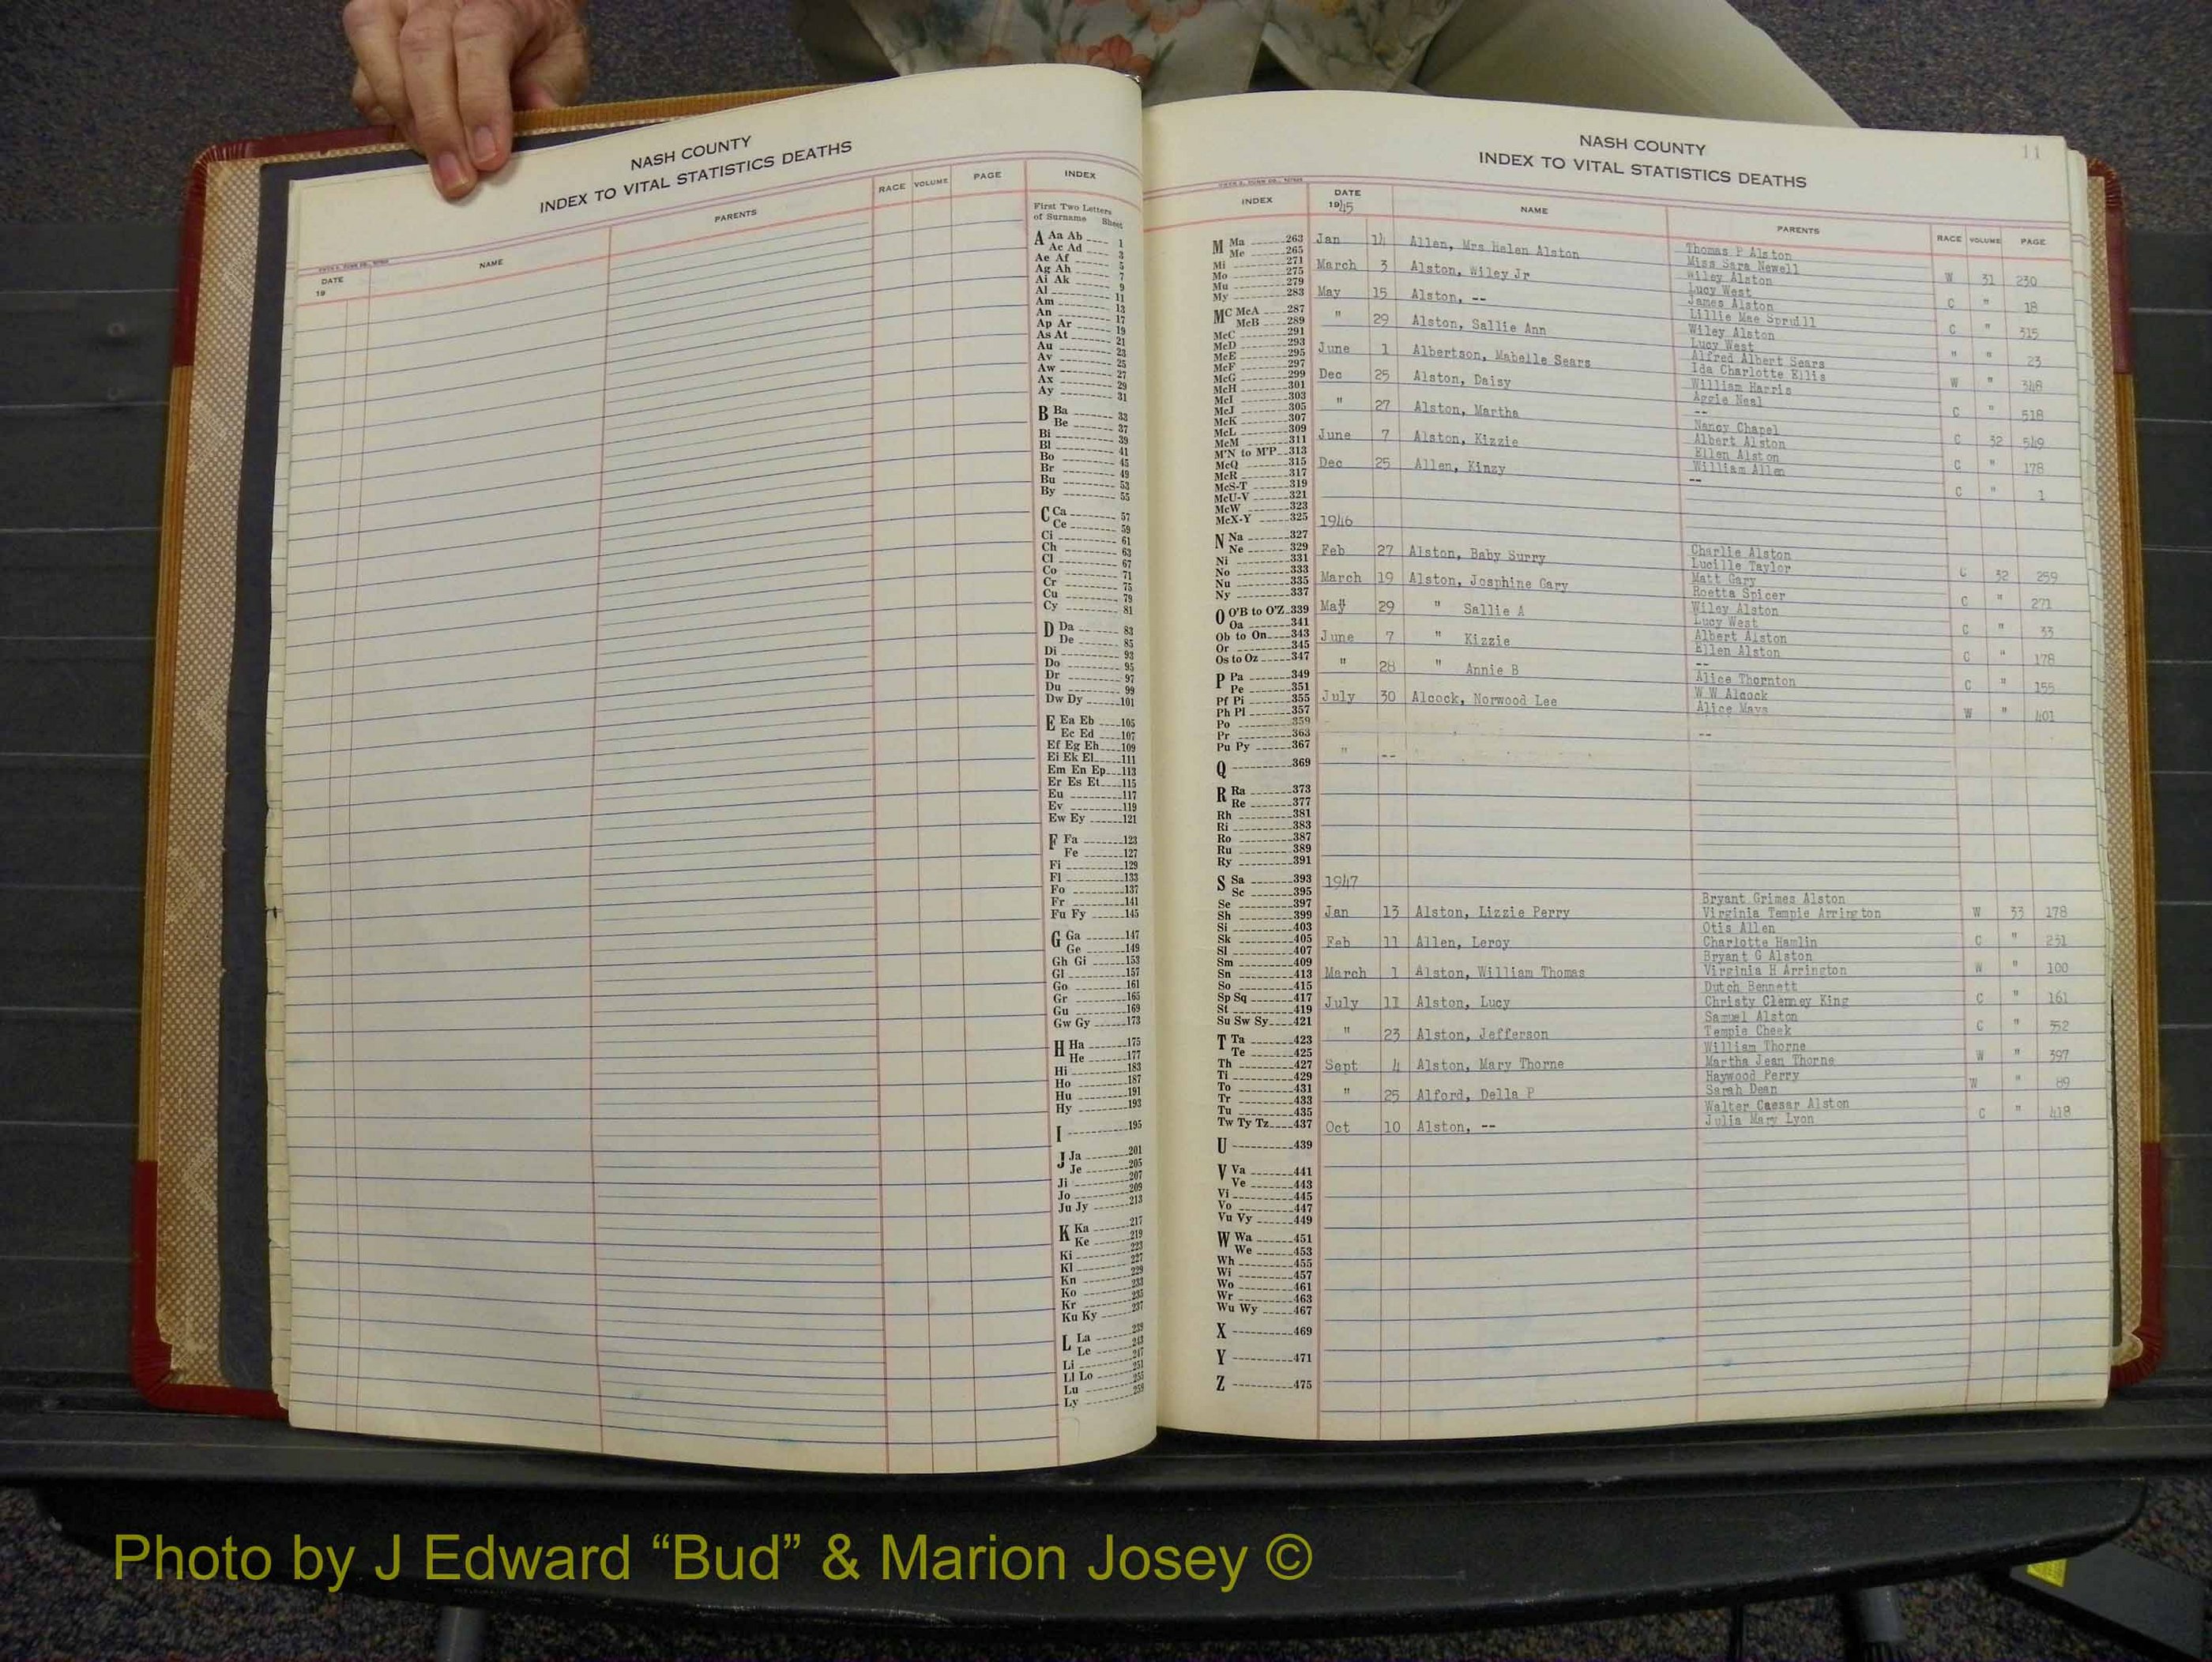 NASH COUNTY
INDEX TO VITAL STATISTICS DEATHS
DATE
19
NAME
PARENTS
RACE
VOLUME
PAGE
INDEX
First Two Letters
of Surname Sheet
A Aa Ab 1
Ac Ad 3
Ae Af 5
Ag Ah 7
Ai Ak 9
Al 11
Am 13
An 17
Ap Ar 19
As At 21
Au 23
Av 25
Aw 27
Ax 29
Ay 31
B Ba 33
Be 37
Bi 39
Bl 41
Bo 45
Br 49
Bu 53
By 55
C Ca 57
Ce 59
Ci 61
Ch 63
Cl 67
Co 71
Cr 75
Cu 79
Cy 81
D Da 83
De 85
Di 93
Do 95
Dr 97
Du 99
Dw Dy 101
E Ea Eb 105
Ec Ed 107
Ef Eg Eh 109
Ei Ek El 111
Em En Ep 113
Er Es Et 115
Eu 117
Ev 119
Ew Ey 121
F Fa 123
Fe 127
Fi 129
Fl 133
Fo 137
Fr 141
Fu Fy 145
G Ga 147
Ge 149
Gh Gi 153
Gl 157
Go 161
Gr 165
Gu 169
Gw Gy 173
H Ha 175
He 177
Hi 183
Ho 187
Hu 191
Hy 193
I 195
J Ja 201
Je 205
Ji 207
Jo 209
Ju Jy 213
K Ka 217
Ke 219
Ki 223
Kl 227
Kn 229
Ko 233
Kr 235
Ku Ky 237
L La 239
Le 243
Li 247
Ll Lo 251
Lu 255
Ly 259
NASH COUNTY 11
INDEX TO VITAL STATISTICS DEATHS
INDEX
DATE
1945
NAME
PARENTS
RACE
VOLUME
PAGE
M Ma 263
Me 265
Mi 271
Mo 275
Mu 279
My 283
MC McA 287
McB 289
McC 291
McD 293
McE 295
McF 297
McG 299
McH 301
McI 303
McJ 305
McK 307
McL 309
McM 311
M'N to M'P 313
McQ 315
McR 317
McS-T 319
McU-V 321
McW 323
McX-Y 325
N Na 327
Ne 329
Ni 331
No 333
Nu 335
Ny 337
O O'B to O'Z 339
Oa 341
Ob to On 343
Or 345
Os to Oz 347
P Pa 349
Pe 351
Pf Pi 355
Ph Pl 357
Po 359
Pr 363
Pu Py 367
Q 369
R Ra 373
Re 377
Rh 381
Ri 383
Ro 387
Ru 389
Ry 391
S Sa 393
Sc 395
Se 397
Sh 399
Si 403
Sk 405
Sl 407
Sm 409
Sn 413
So 415
Sp Sq 417
St 419
Su Sw Sy 421
T Ta 423
Te 425
Th 427
Ti 429
To 431
Tr 433
Tu 435
Tw Ty Tz 437
U 439
V Va 441
Ve 443
Vi 445
Vo 447
Vu Vy 449
W Wa 451
We 453
Wh 455
Wi 457
Wo 461
Wr 463
Wu Wy 467
X 469
Y 471
Z 475
Jan 14 Allen, Mrs Helen Alston Thomas P Alston
Miss Sara Newell W 31 230
March 3 Alston, Wiley Jr Wiley Alston
Lucy West C " 18
May 15 Alston, -- James Alston
Lillie Mae Spruill C " 315
" 29 Alston, Sallie Ann Wiley Alston
Lucy West " " 23
June 1 Albertson, Mabelle Sears Alfred Albert Sears
Ida Charlotte Ellis W " 348
Dec 25 Alston, Daisy William Harris
Aggie Neal C " 518
" 27 Alston, Martha --
Nancy Chapel C 32 549
June 7 Alston, Kizzie Albert Alston
Ellen Alston C " 178
Dec 25 Allen, Kinzy William Allen
-- C " 1
1946
Feb 27 Alston, Baby Surry Charlie Alston
Lucille Taylor C 32 259
March 19 Alston, Josphine Gary Matt Gary
Roetta Spicer C " 271
May 29 " Sallie A Wiley Alston
Lucy West C " 33
June 7 " Kizzie Albert Alston
Ellen Alston C " 178
" 28 " Annie B --
Alice Thornton C " 155
July 30 Alcock, Norwood Lee W W Alcock
Alice Mays W " 401
--
" --
1947
Bryant Grimes Alston
Jan 13 Alston, Lizzie Perry Virginia Temple Arrington W 33 178
Otis Allen
Feb 11 Allen, Leroy Charlotte Hamlin C " 231
Bryant G Alston
March 1 Alston, William Thomas Virginia H Arrington W " 100
Dutch Bennett
July 11 Alston, Lucy Christy Clemey King C " 161
Samuel Alston
" 23 Alston, Jefferson Tempie Cheek C " 352
William Thorne
Sept 4 Alston, Mary Thorne Martha Jean Thorne W " 397
Haywood Perry
" 25 Alford, Della P Sarah Dean W " 89
Walter Caesar Alston
Oct 10 Alston, -- Julia Mary Lyon C " 418
Photo by J Edward “Bud” & Marion Josey ©